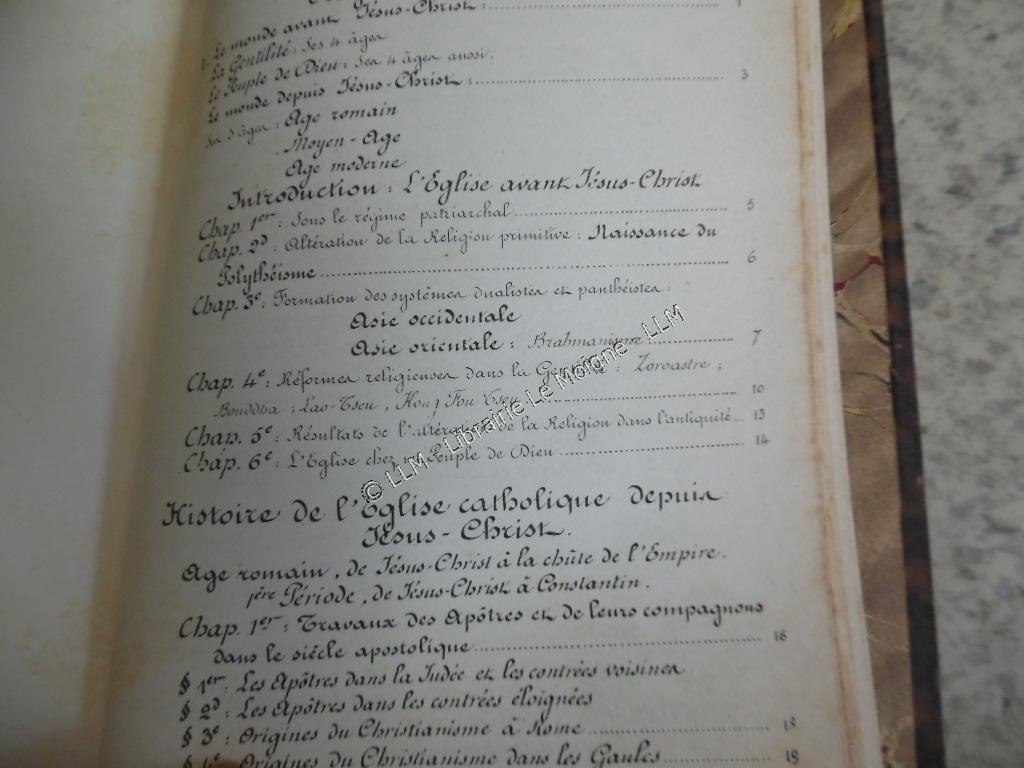 1. Le monde avant Jésus-Christ : 1
La Gentilité : Ses 4 âges
Le Peuple de Dieu : Ses 4 âges aussi.
Le monde depuis Jésus-Christ : 3
Ses 3 âges : Age romain
Moyen-Age
Age moderne
Introduction : L'Eglise avant Jésus-Christ
Chap. 1er : Sous le régime patriarchal 5
Chap. 2d : Altération de la Religion primitive : Naissance du
Polythéisme 6
Chap. 3e : Formation des systèmes dualistes et panthéistes :
Asie occidentale
Asie orientale : Brahmanisme 7
Chap. 4e : Réformes religieuses dans la Gentilité : Zoroastre ;
Bouddha ; Lao-Tseu, Kong Fou Tseu 10
Chap. 5e : Résultats de l'altération de la Religion dans l'antiquité 13
Chap. 6e : L'Eglise chez le Peuple de Dieu 14
Histoire de l'Eglise catholique depuis
Jésus-Christ.
Age romain, de Jésus-Christ à la chûte de l'Empire.
1ère Période, de Jésus-Christ à Constantin.
Chap. 1er : Travaux des Apôtres et de leurs compagnons
dans le siècle apostolique 16
§ 1er : Les Apôtres dans la Judée et les contrées voisines
§ 2d : Les Apôtres dans les contrées éloignées
§ 3e : Origines du Christianisme à Rome 18
§ 4e : Origines du Christianisme dans les Gaules 19
© LLM - Librairie Le Moigne - LLM